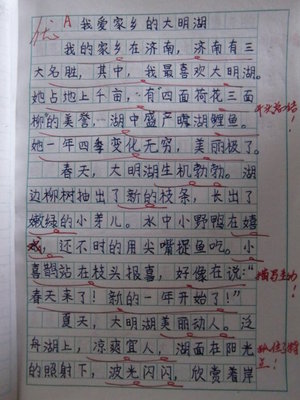 优 A 我爱家乡的大明湖
我的家乡在济南，济南有三
大名胜，其中，我最喜欢大明湖。
她占地上千亩，有四面荷花三面
柳的美誉，湖中盛产 湖鲤鱼。
她一年四季变化无穷，美丽极了。
春天，大明湖生机勃勃。湖
边柳树抽出了新的枝条，长出了
嫩绿的小芽儿。水中小野鸭在嬉
戏，还不时的用尖嘴捉鱼吃。小
喜鹊站在枝头报喜，好像在说：“
春天来了！新的一年开始了！”
描写生动！
夏天，大明湖美丽动人。泛
舟湖上，凉爽宜人，湖面在阳光
的照射下，波光闪闪，欣赏着岸